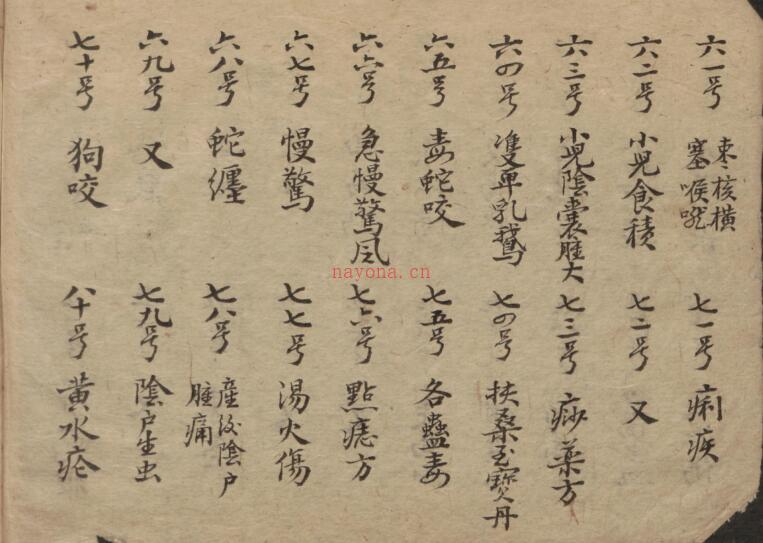 六一号 枣核横塞喉咙
六二号 小児食積
六三号 小児陰囊腫大
六四号 隻单乳鵝
六五号 毒蛇咬
六六号 急慢驚风
六七号 慢驚
六八号 蛇纏
六九号 又
七十号 狗咬
七一号 痢疾
七二号 又
七三号 痧藥方
七四号 扶桑至寶丹
七五号 各蠱毒
七六号 點痣方
七七号 湯火傷
七八号 産后陰户腫痛
七九号 陰户生虫
八十号 黄水疮
nayona.cn